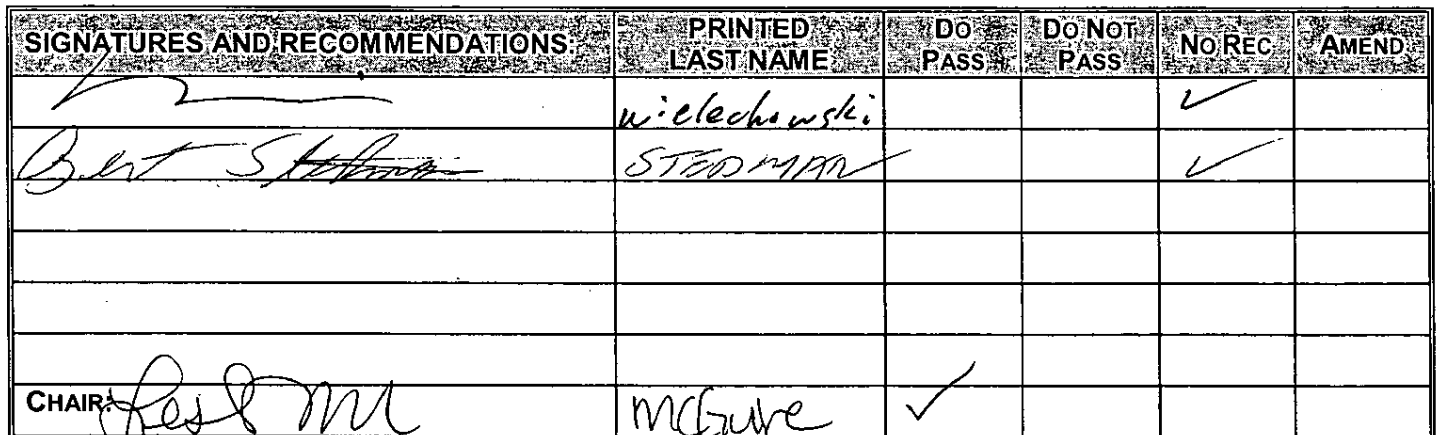 SIGNATURES AND RECOMMENDATIONS: PRINTED LAST NAME DO PASS DO NOT PASS NO REC AMEND
wielechowski ✓
Bert Stedman STEDMAN ✓
CHAIR: McGuire ✓